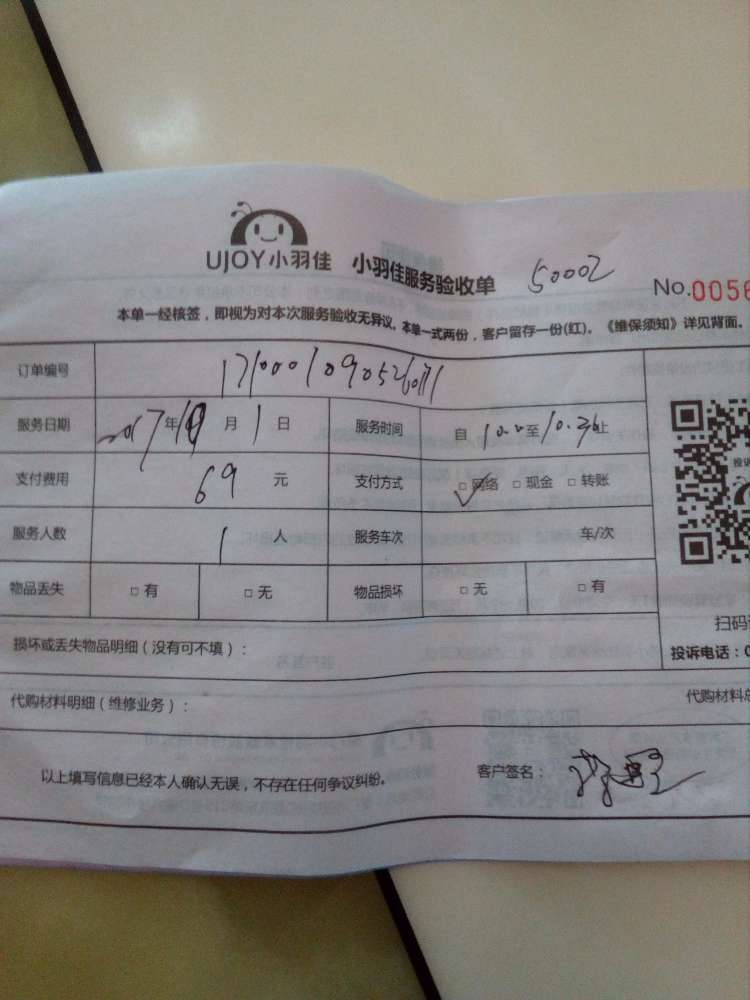 UJOY小羽佳 小羽佳服务验收单 50002
No.0056
本单一经核签，即视为对本次服务验收无异议。本单一式两份，客户留存一份(红)。《维保须知》详见背面。
订单编号
服务日期 2017年 月1日 服务时间 自10.00至10.36止
支付费用 69元 支付方式 □网络 □现金 □转账
服务人数 1人 服务车次 车/次
投诉
物品丢失 □有 □无 物品损坏 □无 □有
扫码
损坏或丢失物品明细（没有可不填）：
投诉电话：0
代购材料明细（维修业务）：
代购材料总
以上填写信息已经本人确认无误，不存在任何争议纠纷。 客户签名：